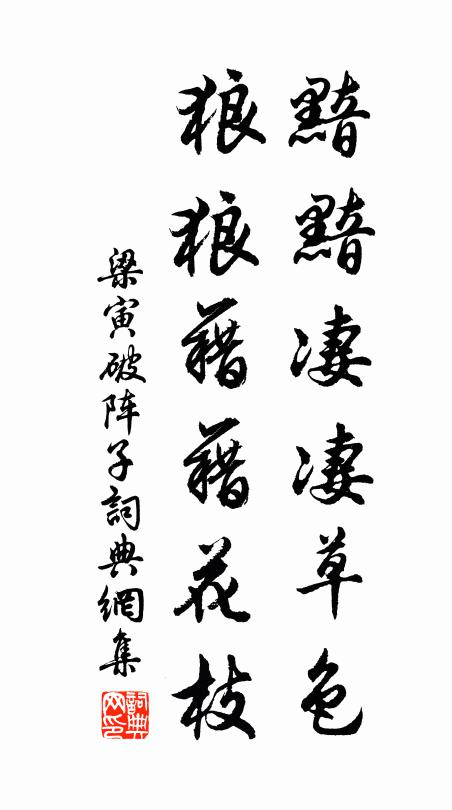 黯黯凄凄草色
狼狼藉藉花枝
梁寅破阵子詞典網集
詞典网印